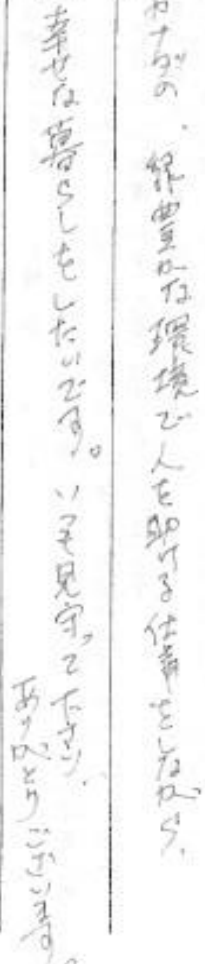 カナダの、緑豊かな環境で人を助ける仕事をしながら、
幸せな暮らしをしたいです。いつも見守って下さい、
ありがとうございます。